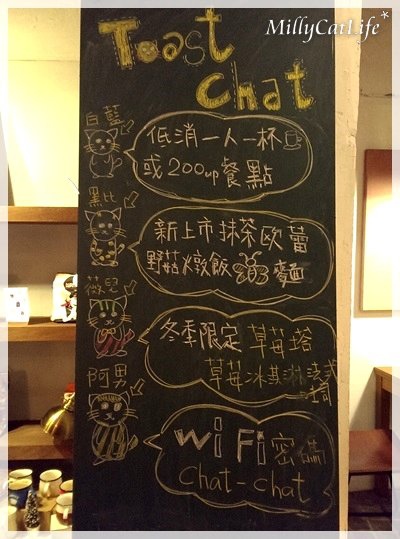 MillyCatLife*
Toast
Chat
白藍
低消一人一杯
或200up餐點
黑比
新上市抹茶歐蕾
野菇燉飯 麵
薇兒
冬季限定 草莓塔
草莓冰淇淋法式
阿男
WiFi密碼
chat-chat